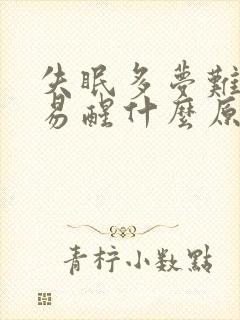 失眠多夢難
易醒什麼原
青檸小數點